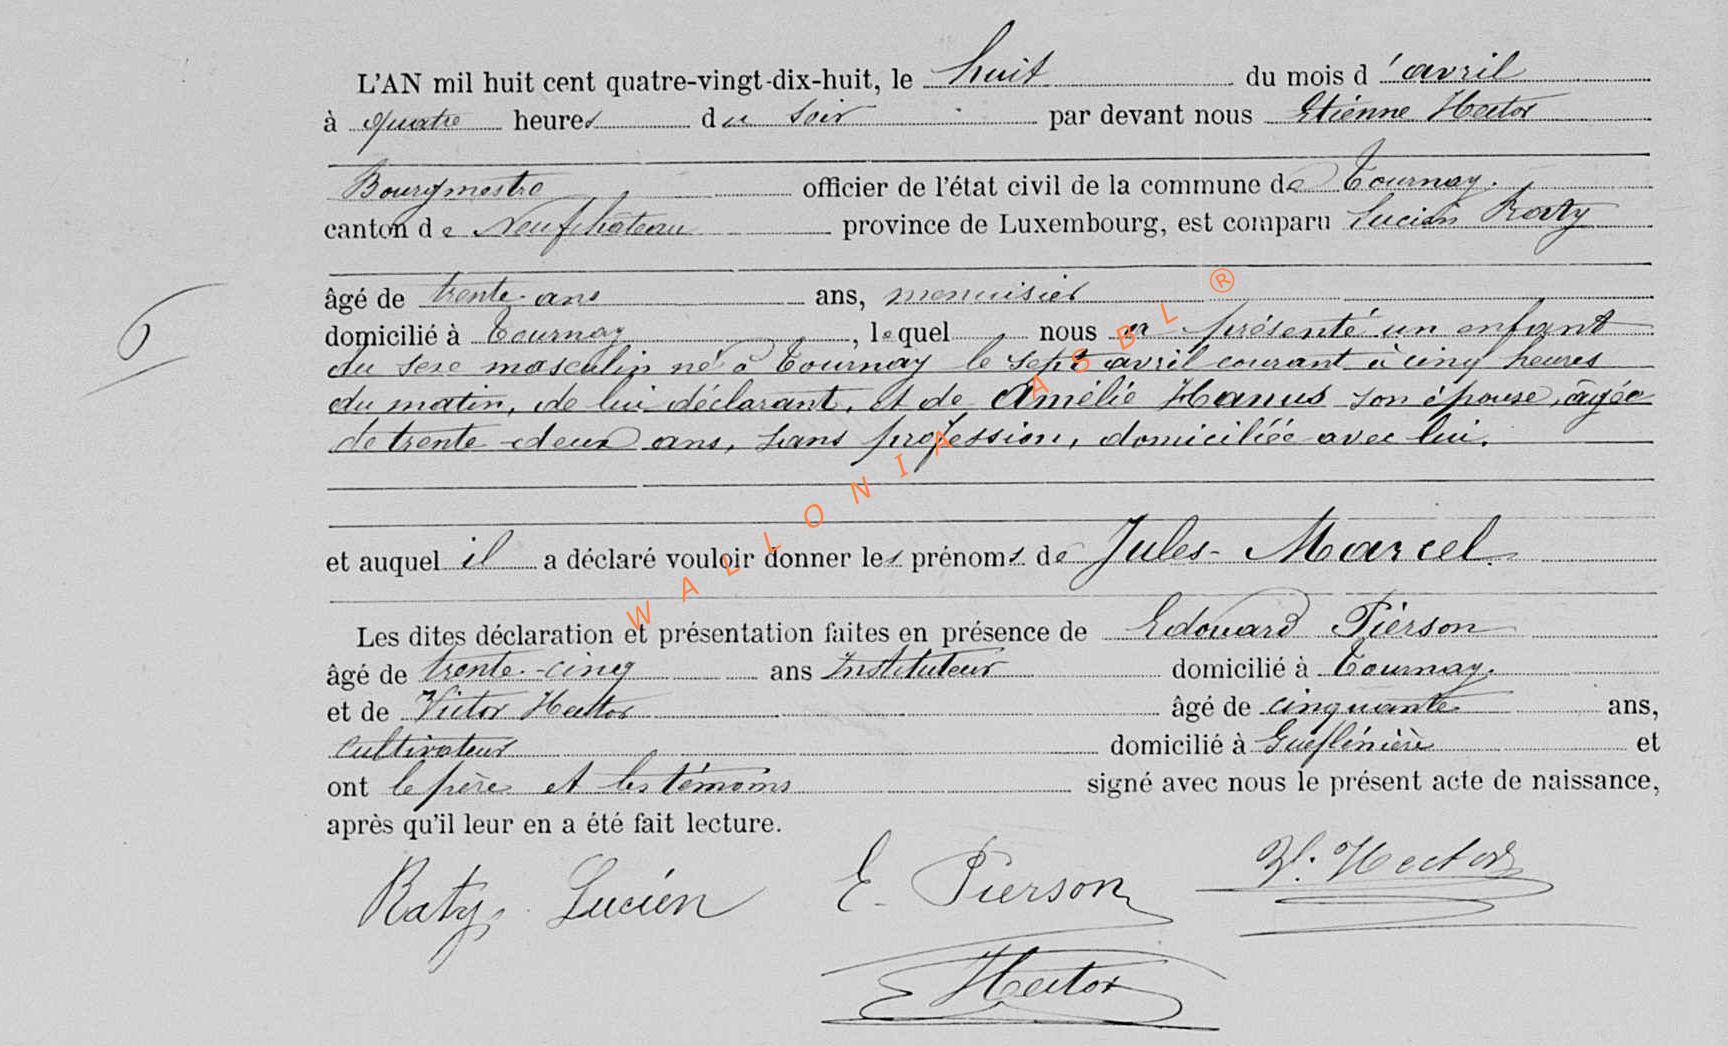 L'AN mil huit cent quatre-vingt-dix-huit, le huit du mois d'avril
à quatre heures du soir par devant nous Etienne Hector
Bourgmestre officier de l'état civil de la commune de Tournay.
canton de Neufchateau province de Luxembourg, est comparu Lucien Raty
âgé de trente ans ans, menuisier
domicilié à Tournay, lequel nous a présenté un enfant
du sexe masculin né à Tournay le sept avril courant à cinq heures
du matin, de lui déclarant, et de Amélie Hanus son épouse, âgée
de trente-deux ans, sans profession, domiciliée avec lui.
et auquel il a déclaré vouloir donner les prénoms de Jules-Marcel.
Les dites déclaration et présentation faites en présence de Edouard Pierson
âgé de trente-cinq ans Instituteur domicilié à Tournay.
et de Victor Hector âgé de cinquante ans,
cultivateur domicilié à et
ont le père et les témoins signé avec nous le présent acte de naissance,
après qu'il leur en a été fait lecture.
Raty Lucien E. Pierson V. Hector
Hector
6
WALLONIA ASBL ®